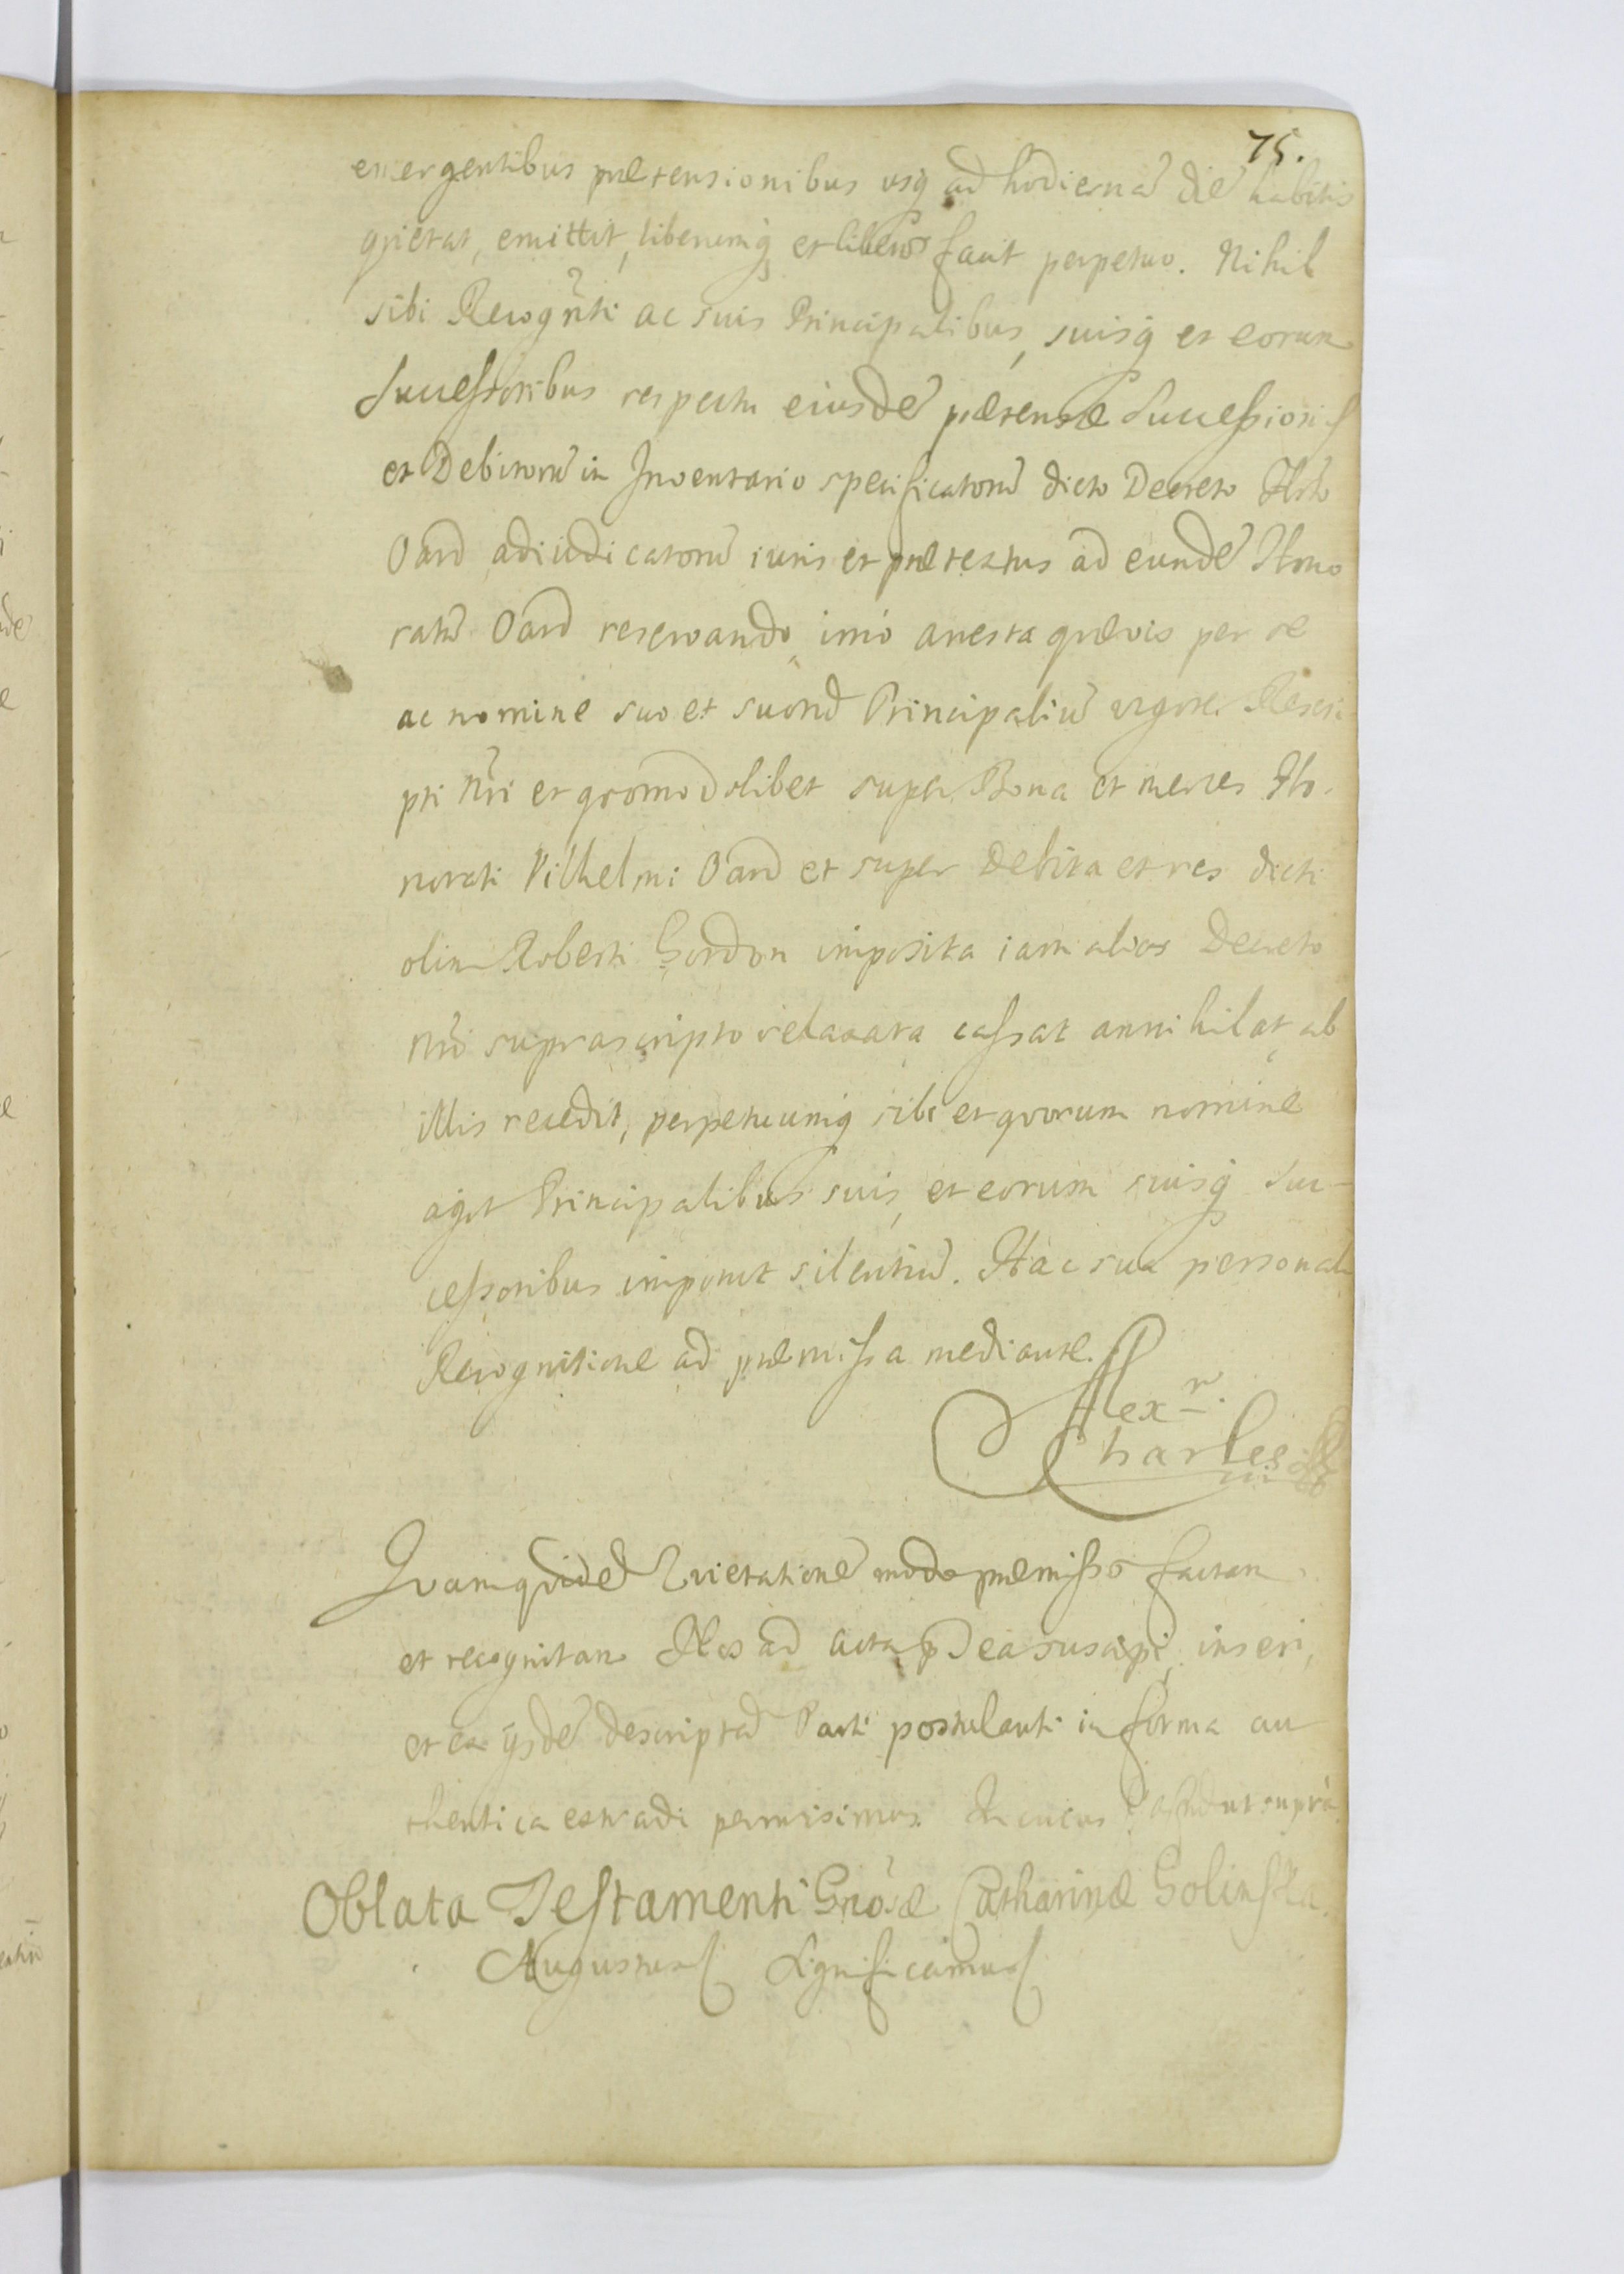 75.
emergentibus prætensionibus usq ad hodiernã diẽ habitis
qvietat, emittit, liberumq et liberos facit perpetuo. Nihil
sibi Recogn̄ti ac suis Principalibus, suisq et eorum
Successoribus respectu eiusdẽ prætensæ Successionis
et Debitorũ in Inventario specificatorũ dicto Decreto Hto
Oard adiudicatorũ iuris et prætextus ad eundẽ Hono
ratũ Oard reservando, imò arresta qvævis per se
ac nomine suo et suorũ Principaliũ vigore Rescri
pti nr̃i et qvomodolibet super Bona et merces Ho-
norati Vilhelmi Oard et super debita et res dicti
olim Roberti Gordon imposita iam alias Decreto
nr̃o suprascripto relaxata cassat annihilat ab
illis recedit, perpetuumq sibi et qvorum nomine
agit Principalibus suis, et eorum suisq Suc-
cessoribus imponit silentiũ. Hac sua personali
Recognitione ad præmissa mediante.
Alexr.
Charles
Qvamqvidẽ Qvietationẽ modo præmisso factam
et recognitam Nos ad Acta p̃ea suscipi, inseri,
et ex ijsdẽ descriptã Parti postulanti in forma au
thentica extradi permisimus. In cuius ut suprà
Oblata Testamenti Gnosæ Catharinæ Golinska
Augustus Significamus